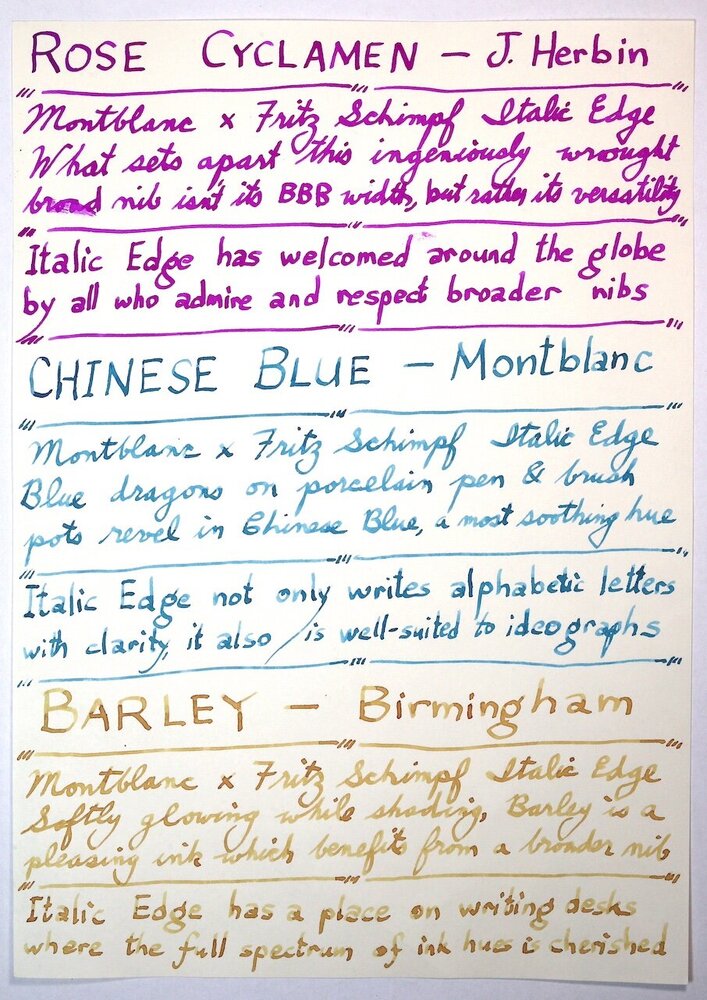 ROSE CYCLAMEN – J. Herbin
Montblanc x Fritz Schimpf Italic Edge
What sets apart this ingeniously wrought
broad nib isn't its BBB width, but rather its versatility
Italic Edge has welcomed around the globe
by all who admire and respect broader nibs
CHINESE BLUE – Montblanc
Montblanc x Fritz Schimpf Italic Edge
Blue dragons on porcelain pen & brush
pots revel in Chinese Blue, a most soothing hue
Italic Edge not only writes alphabetic letters
with clarity, it also is well-suited to ideographs
BARLEY – Birmingham
Montblanc x Fritz Schimpf Italic Edge
Softly glowing while shading, Barley is a
pleasing ink which benefits from a broader nib
Italic Edge has a place on writing desks
where the full spectrum of ink hues is cherished